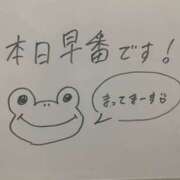 本日早番です!
まってまーすっ